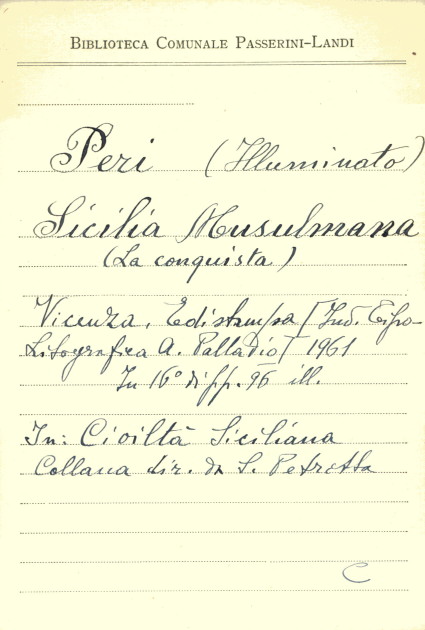 BIBLIOTECA COMUNALE PASSERINI-LANDI
Peri (Illuminato)
Sicilia Musulmana
(La conquista)
Vicenza, Edistampa [Ind. Tipo-
Litografica A. Palladio] 1961
In 16° di pp. 96 ill.
In: Civiltà Siciliana
Collana dir. da S. Petrotta
C